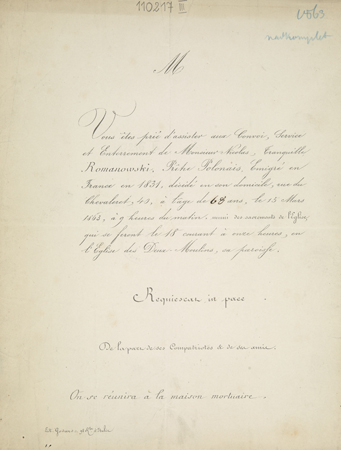 110217 III
M
Vous êtes prié d'assister aux Convoi, Service
et Enterrement de Monsieur Nicolas, Tranquille
Romanowski, Prêtre Polonais, Emigré en
France en 1831, décédé en son domicile, rue du
Chevaleret, 43, à l'âge de 68 ans, le 15 Mars
à 9 heures du matin, muni des sacrements de l'Eglise,
qui se feront le 18 courant à onze heures, en
l'Eglise des Deux-Moulins, sa paroisse.
Requiescat in pace
De la part de ses Compatriotes & de ses amis.
On se réunira à la maison mortuaire.